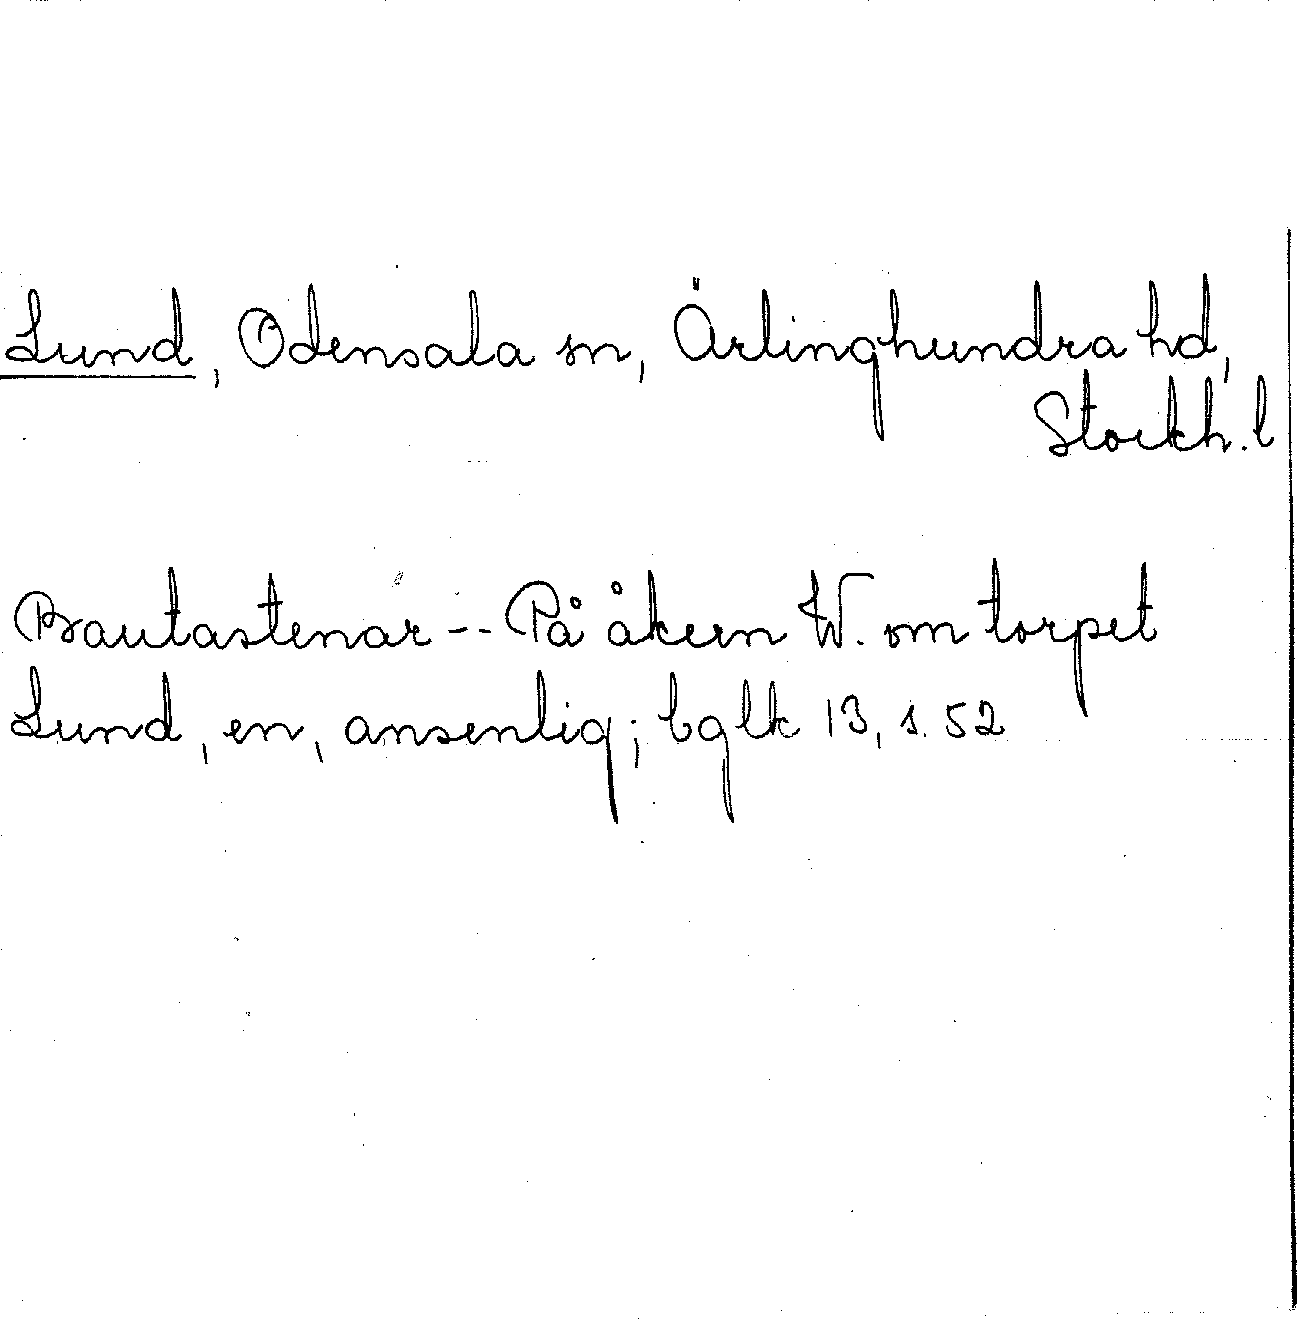 Lund, Odensala sn, Ärlinghundra hd,
Stockh. l
Bautastenar -- På åkern W. om torpet
Lund, en, ansenlig; bglk 13, s. 52